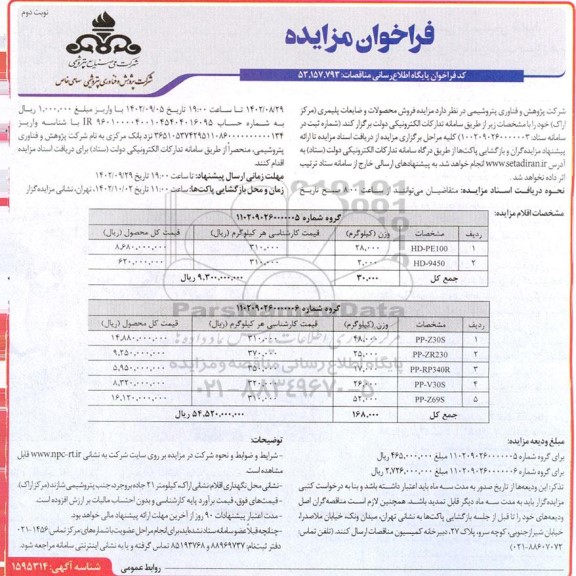 نوبت دوم
فراخوان مزایده
شرکت ملی صنایع پتروشیمی
شرکت پژوهش و فناوری پتروشیمی سهامی خاص
کد فراخوان پایگاه اطلاع رسانی مناقصات: ۵۳,۱۵۷,۷۹۳
شرکت پژوهش و فناوری پتروشیمی در نظر دارد مزایده فروش محصولات و ضایعات پلیمری (مرکز
اراک) خود را با مشخصات زیر از طریق سامانه تدارکات الکترونیکی دولت برگزار کند (شماره ثبت در
سامانه ستاد: ۱۰۰۲۰۹۰۲۶۰۰۰۰۰۳) کلیه مراحل برگزاری مزایده از دریافت اسناد مزایده تا ارائه
پیشنهاد مزایده‌گران و بازگشایی پاکت‌ها از طریق درگاه سامانه تدارکات الکترونیکی دولت (ستاد) به
آدرس www.setadiran.ir انجام خواهد شد. به پیشنهادهای ارسالی خارج از سامانه ستاد ترتیب
اثر داده نخواهد شد.
نحوه دریافت اسناد مزایده: متقاضیان می‌توانند از ساعت ۸:۰۰ صبح تاریخ
۱۴۰۲/۰۸/۲۹ تا ساعت ۱۹:۰۰ تاریخ ۱۴۰۲/۰۹/۰۵ با واریز مبلغ ۱,۰۰۰,۰۰۰ ریال
به شماره حساب IR با شناسه واریز
نزد بانک مرکزی به نام شرکت پژوهش و فناوری
پتروشیمی، منحصراً از طریق سامانه تدارکات الکترونیکی دولت (ستاد) برای دریافت اسناد مزایده
اقدام کنند.
مهلت زمانی ارسال پیشنهاد: تا ساعت ۱۹:۰۰ تاریخ ۱۴۰۲/۰۹/۲۹
زمان و محل بازگشایی پاکت‌ها: ساعت ۱۱:۰۰ تاریخ ۱۴۰۲/۱۰/۰۲، تهران، نشانی مزایده‌گزار
مشخصات اقلام مزایده:
گروه شماره ۱۱۰۲۰۹۰۲۶۰۰۰۰۰۵
ردیف مشخصات وزن (کیلوگرم) قیمت کارشناسی هر کیلوگرم (ریال) قیمت کل محصول (ریال)
۱ HD-PE100 ۲۸,۰۰۰ ۳۱۰,۰۰۰ ۸,۶۸۰,۰۰۰,۰۰۰
۲ HD-9450 ۲,۰۰۰ ۳۱۰,۰۰۰ ۶۲۰,۰۰۰,۰۰۰
جمع کل ۳۰,۰۰۰ ۹,۳۰۰,۰۰۰,۰۰۰ ریال
ParsNamadData
گروه شماره ۱۱۰۲۰۹۰۲۶۰۰۰۰۰۶
ردیف مشخصات وزن (کیلوگرم) قیمت کارشناسی هر کیلوگرم (ریال) قیمت کل محصول (ریال)
۱ PP-Z30S ۴۸,۰۰۰ ۳۱۰,۰۰۰ ۱۴,۸۸۰,۰۰۰,۰۰۰
۲ PP-ZR230 ۲۵,۰۰۰ ۳۷۰,۰۰۰ ۹,۲۵۰,۰۰۰,۰۰۰
۳ PP-RP340R ۱۷,۰۰۰ ۳۵۰,۰۰۰ ۵,۹۵۰,۰۰۰,۰۰۰
۴ PP-V30S ۲۶,۰۰۰ ۳۲۰,۰۰۰ ۸,۳۲۰,۰۰۰,۰۰۰
۵ PP-Z69S ۵۲,۰۰۰ ۳۱۰,۰۰۰ ۱۶,۱۲۰,۰۰۰,۰۰۰
جمع کل ۱۶۸,۰۰۰ ۵۴,۵۲۰,۰۰۰,۰۰۰ ریال
پایگاه اطلاع رسانی مناقصه و مزایده
۰۲۱-۸۸۳۴۹۶۷۰-۵
مبلغ ودیعه مزایده:
برای گروه شماره ۱۱۰۲۰۹۰۲۶۰۰۰۰۰۵ مبلغ ۴۶۵,۰۰۰,۰۰۰ ریال
برای گروه شماره ۱۱۰۲۰۹۰۲۶۰۰۰۰۰۶ مبلغ ۲,۷۲۶,۰۰۰,۰۰۰ ریال
تذکر: این ودیعه‌ها از تاریخ صدور به مدت سه ماه باید اعتبار داشته باشد و بنا به درخواست کتبی
مزایده‌گزار باید به مدت سه ماه دیگر قابل تمدید باشد. همچنین لازم است مناقصه‌گران اصل
ودیعه‌های خود را تا قبل از جلسه بازگشایی پاکت‌ها به نشانی تهران، میدان ونک، خیابان ملاصدرا،
خیابان شیراز جنوبی، کوچه سرو، پلاک ۲۷، دبیرخانه کمیسیون مناقصات ارسال کنند. (تلفن تماس:
۰۲۱-۸۸۶۰۷۰۷۲)
توضیحات:
- شرایط و ضوابط و نحوه شرکت در مزایده بر روی سایت شرکت به نشانی www.npc-rt.ir قابل
مشاهده است.
- نشانی محل نگهداری اقلام: نشانی اراک، کیلومتر ۲۱ جاده بروجرد، جنب پتروشیمی شازند (مرکز اراک)
- قیمت‌های فوق، قیمت برآورد پایه کارشناسی و بدون احتساب مالیات بر ارزش افزوده است.
- مدت اعتبار پیشنهادات ۹۰ روز از آخرین مهلت ارائه پیشنهاد مالی خواهد بود.
- چنانچه قبلاً عضو سامانه ستاد نشده‌اید، برای انجام مراحل عضویت با شماره‌های مرکز تماس ۱۴۵۶-۰۲۱
دفتر ثبت‌نام: ۸۸۹۶۹۷۳۷ و ۸۵۱۹۳۷۶۸ تماس گرفته و یا به نشانی اینترنتی سامانه مراجعه شود.
روابط عمومی
شناسه آگهی: ۱۵۹۵۳۱۴